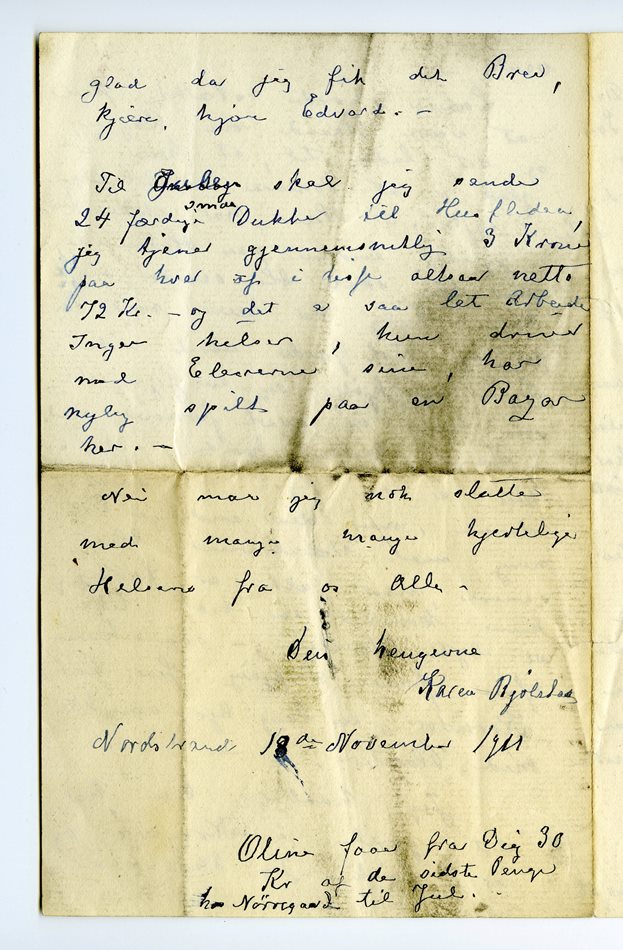 glad da jeg fik det Brev,
kjære, kjære Edvard. –
Til skal jeg sende
smaa
24 færdige Dukker til Husfliden,
jeg tjener gjennemsnitlig 3 Kroner
paa hver af i disse altsaa netto
72 Kr. – og det e saa let Arbeide
Inga hilser, hun driver
med Eleverne sine, har
nylig spilt paa en Bazar
her. –
Nei maa jeg nok slutte
med mange mange hjertelige
Hilsener fra os Alle.
Din hengivne
Karen Bjølstad
Nordstrand 18de November 1911
Oline faar fra Dig 30
Kr af de sidste Penge
hos Nørregaard til Jul.